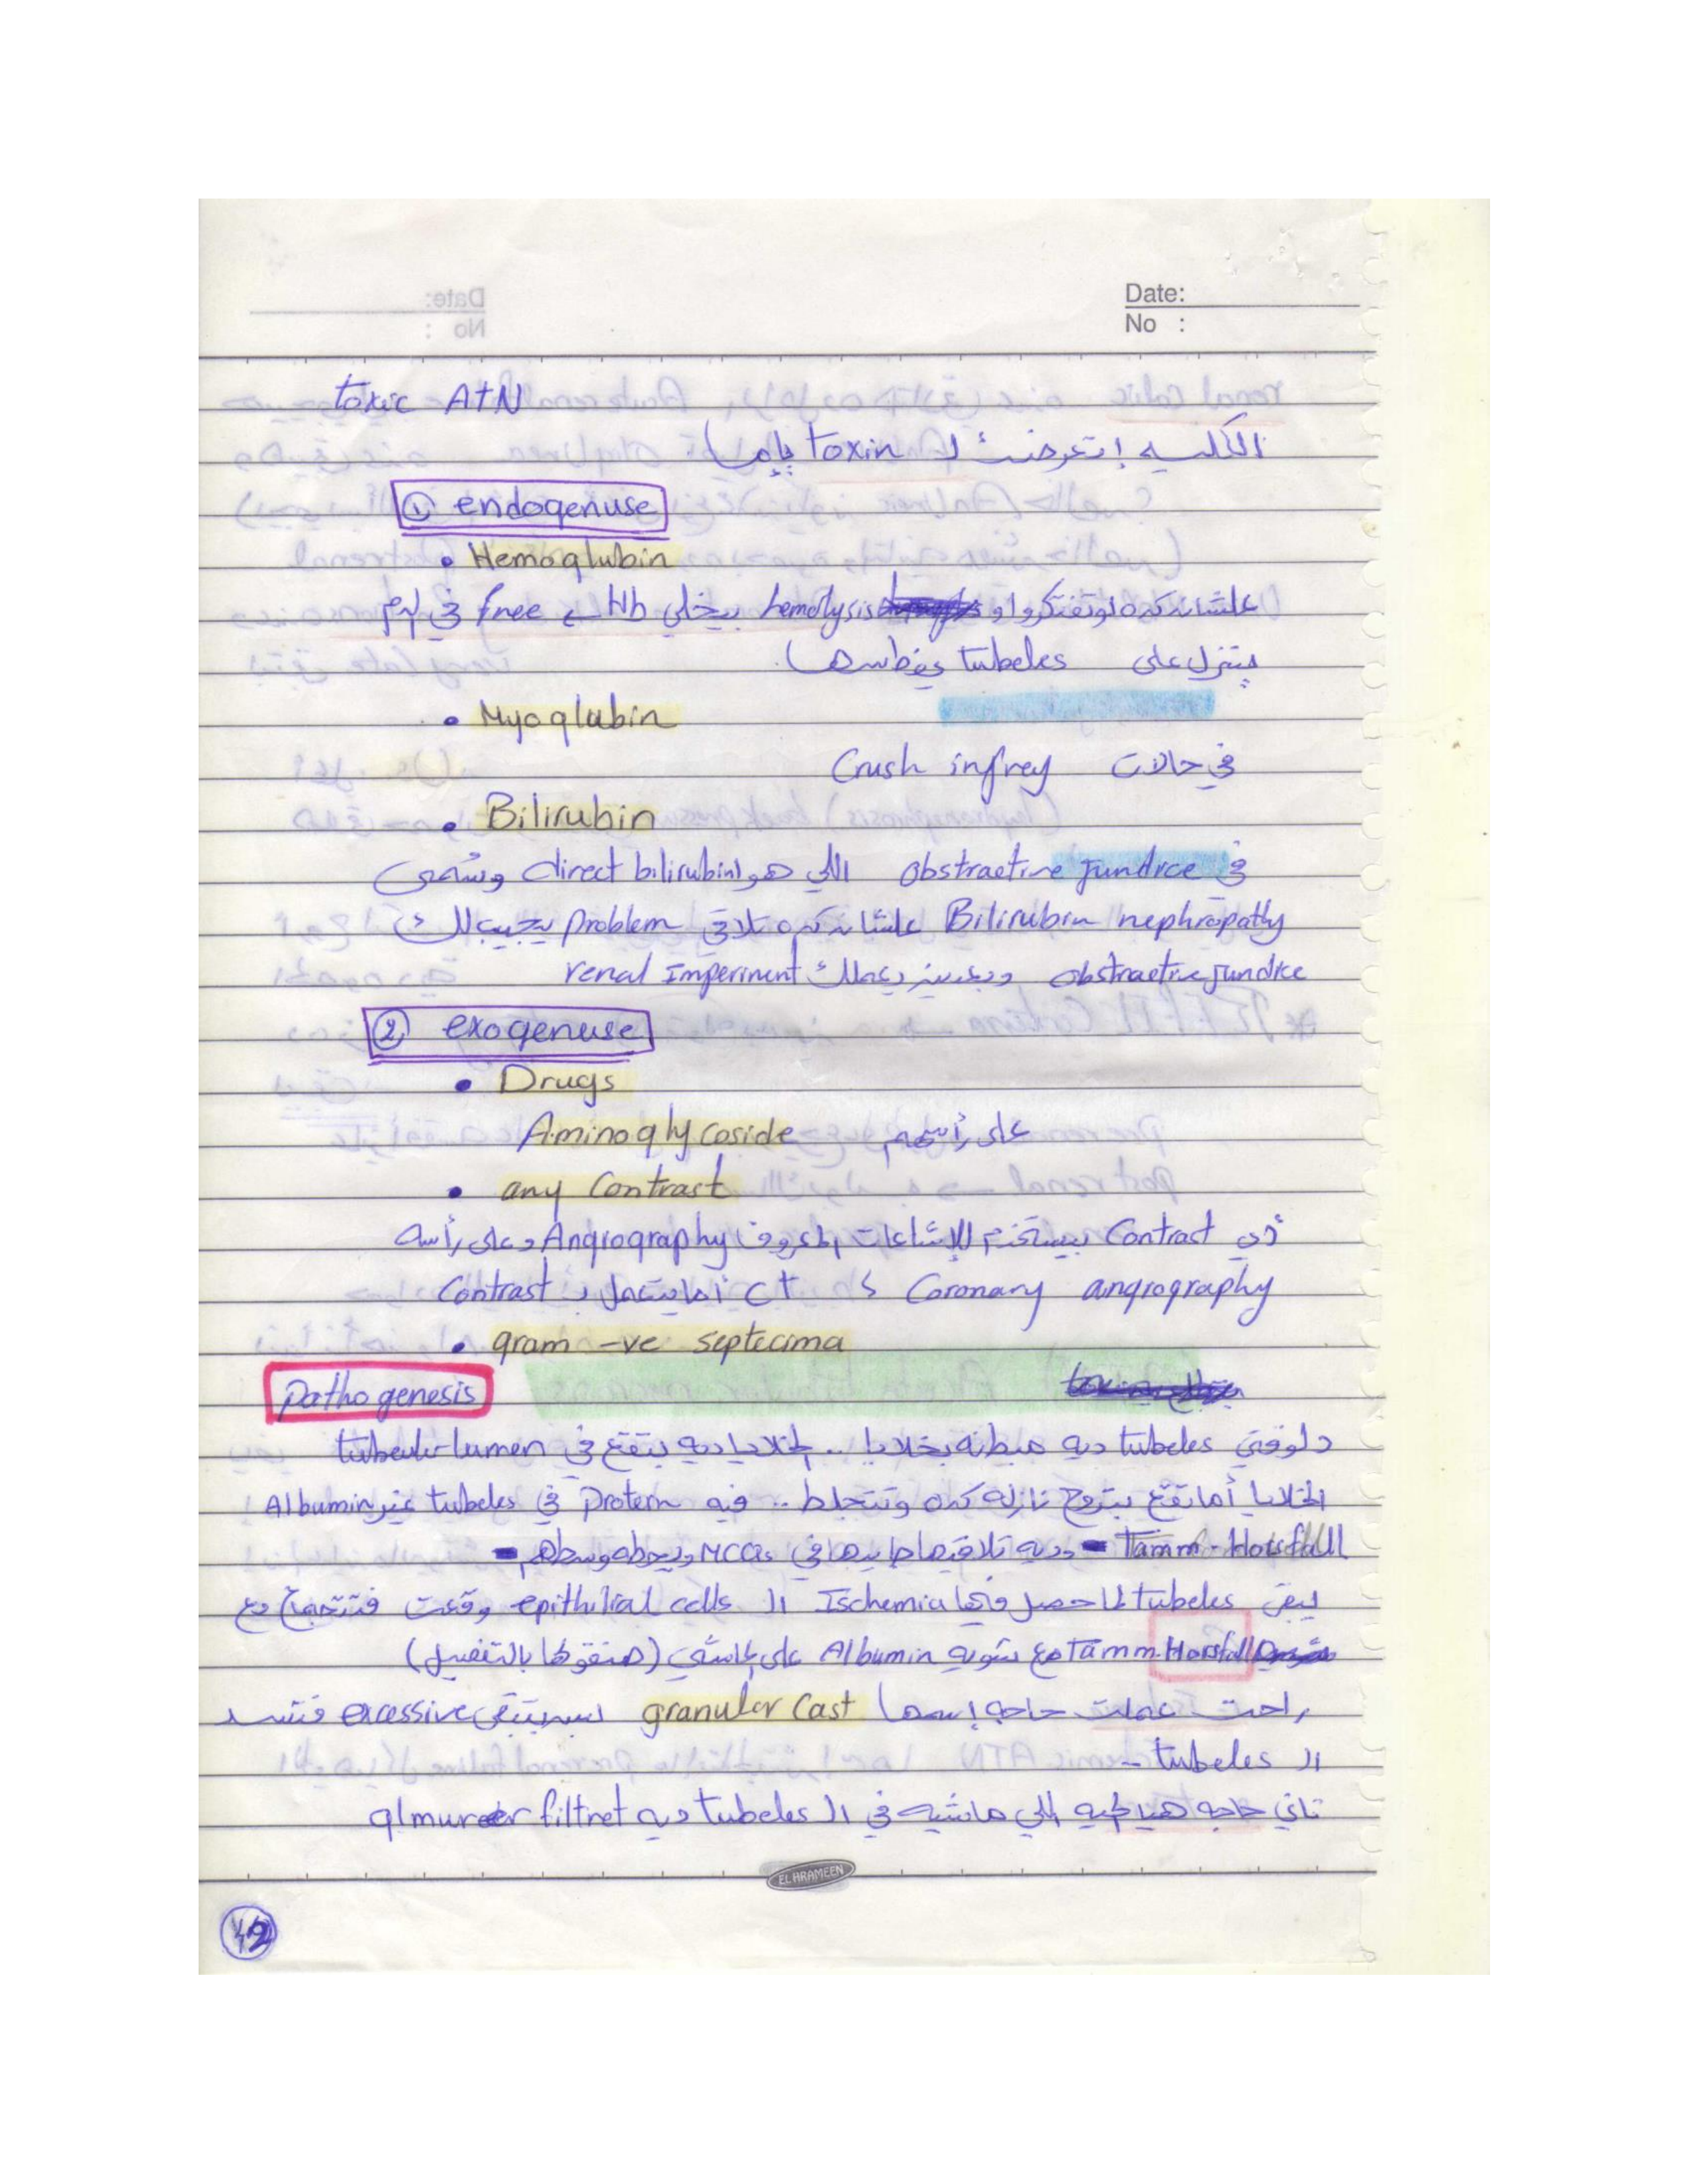 Date:
No :
toxic ATN
الكليه إتعرضت لـ toxin يا إما
① endogenuse
• Hemoglubin
علشان كده لو تفتكروا و hemolysis بيخلي Hb ← free في الدم
بتنزل على tubeles
• Myoglubin
في حالات Crush infrey
• Bilirubin
في obstractive jundice اللي هو direct bilirubin وتسمى
Bilirubin nephropathy علشان كده تلاقي problem يجيب لك
obstractive jundice وبعدين يعملك renal Imperiment
② exogenuse
• Drugs
على رأسهم Aminoglycoside
• any Contrast
أي Contrast بيستخدم للإشاعات المعروف Angrography وعلى رأسه
Coronary angrography ك CT أما يتعمل بـ Contrast
• gram -ve septecima
Pathogenesis
دلوقتي tubeles ديه مبطنه بخلايا .. الخلايا ديه بتقع في tubeular lumen
الخلايا أما تقع بتروح نازله كده وتتجلط .. فيه protern في tubeles غير Albumin
Tamm-Horsfall - وديه تلاقيها جايبها في MCQs ويحطه وسطهم -
يبقى tubeles لما حصل فيها Ischemia الـ epithilial cells وقعت فتتجمع مع
Tamm.Horsfall مع شويه Albumin على الماشي (هنقولها بالتفصيل)
راحت عملت حاجه إسمها granular cast بتبقى excessive فتسد
الـ tubeles -
تاني حاجه هيا الميه اللي ماشيه في الـ tubeles ديه glmurer filtret
EL HRAMEEN